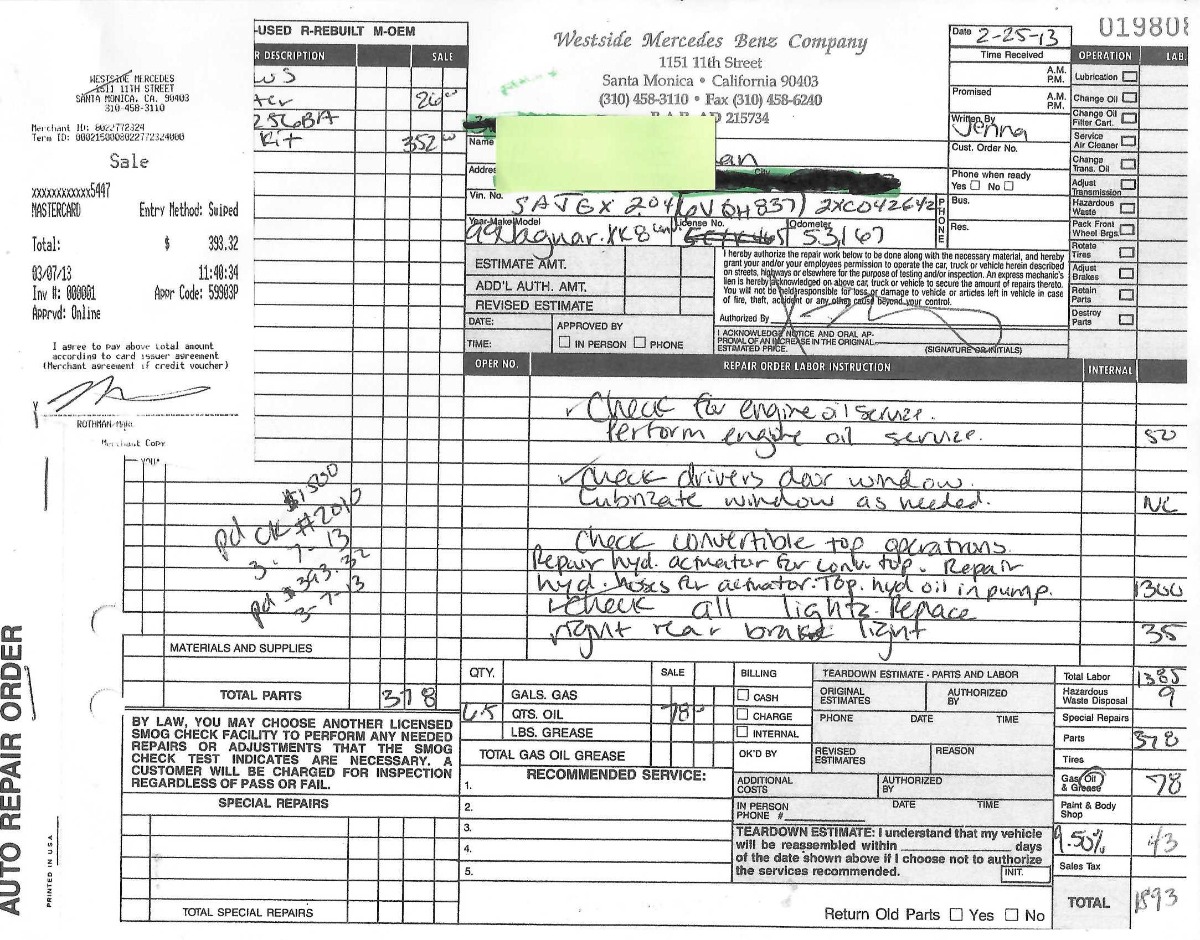 -USED R-REBUILT M-OEM
R DESCRIPTION SALE
26
256BA
Kit 352
WESTSIDE MERCEDES
1511 11TH STREET
SANTA MONICA, CA. 90403
310-458-3110
Merchant ID: 8022772324
Term ID: 00021500008022772324000
Sale
xxxxxxxxxxxx5447
MASTERCARD Entry Method: Swiped
Total: $ 393.32
03/07/13 11:40:34
Inv #: 000001 Appr Code: 59903P
Apprvd: Online
I agree to pay above total amount
according to card issuer agreement
(Merchant agreement if credit voucher)
ROTHMAN/MARK
Merchant Copy
YOU*
pd CK #2010 $1500
3-7-13
pd $393.32
3-7-13
MATERIALS AND SUPPLIES
TOTAL PARTS 378
BY LAW, YOU MAY CHOOSE ANOTHER LICENSED
SMOG CHECK FACILITY TO PERFORM ANY NEEDED
REPAIRS OR ADJUSTMENTS THAT THE SMOG
CHECK TEST INDICATES ARE NECESSARY. A
CUSTOMER WILL BE CHARGED FOR INSPECTION
REGARDLESS OF PASS OR FAIL.
SPECIAL REPAIRS
TOTAL SPECIAL REPAIRS
AUTO REPAIR ORDER
PRINTED IN U.S.A.
Westside Mercedes Benz Company
1151 11th Street
Santa Monica • California 90403
(310) 458-3110 • Fax (310) 458-6240
B.A.R. AD 215734
Name
Address City
Vin. No. SAJGX 204 (6V QH837) 2XC042642
Year-Make/Model License No. Odometer
99 Jaguar. XK8 53,167
PHONE
Bus.
Res.
Date 2-25-13
Time Received
A.M.
P.M.
Promised A.M.
P.M.
Written By
Jenna
Cust. Order No.
Phone when ready
Yes No
019808
OPERATION LAB.
Lubrication
Change Oil
Change Oil
Filter Cart.
Service
Air Cleaner
Change
Trans. Oil
Adjust
Transmission
Hazardous
Waste
Pack Front
Wheel Brgs.
Rotate
Tires
Adjust
Brakes
Retain
Parts
Destroy
Parts
ESTIMATE AMT.
ADD'L AUTH. AMT.
REVISED ESTIMATE
DATE: APPROVED BY
TIME: IN PERSON PHONE
I hereby authorize the repair work below to be done along with the necessary material, and hereby
grant your and/or your employees permission to operate the car, truck or vehicle herein described
on streets, highways or elsewhere for the purpose of testing and/or inspection. An express mechanic's
lien is hereby acknowledged on above car, truck or vehicle to secure the amount of repairs thereto.
You will not be held responsible for loss or damage to vehicle or articles left in vehicle in case
of fire, theft, accident or any other cause beyond your control.
Authorized By
I ACKNOWLEDGE NOTICE AND ORAL AP-
PROVAL OF AN INCREASE IN THE ORIGINAL
ESTIMATED PRICE. (SIGNATURE OR INITIALS)
OPER NO. REPAIR ORDER LABOR INSTRUCTION INTERNAL
Check for engine oil service.
Perform engine oil service. 50
Check drivers door window.
Lubricate window as needed. NC
Check convertible top operations.
Repair hyd. actuator for conv. top. Repair
hyd. hoses for actuator. Top. hyd oil in pump. 1300
Check all lights. Replace
right rear brake light 35
QTY. SALE
GALS. GAS
6.5 QTS. OIL 78
LBS. GREASE
TOTAL GAS OIL GREASE
RECOMMENDED SERVICE:
1.
2.
3.
4.
5.
BILLING
CASH
CHARGE
INTERNAL
OK'D BY
TEARDOWN ESTIMATE - PARTS AND LABOR
ORIGINAL
ESTIMATES AUTHORIZED
BY
PHONE DATE TIME
REVISED
ESTIMATES REASON
ADDITIONAL
COSTS AUTHORIZED
BY
IN PERSON
PHONE # DATE TIME
TEARDOWN ESTIMATE: I understand that my vehicle
will be reassembled within days
of the date shown above if I choose not to authorize
the services recommended. INIT.
Return Old Parts Yes No
Total Labor 1385
Hazardous
Waste Disposal 9
Special Repairs
Parts 378
Tires
Gas, Oil
& Grease 78
Paint & Body
Shop
9.50% 43
Sales Tax
TOTAL 1893